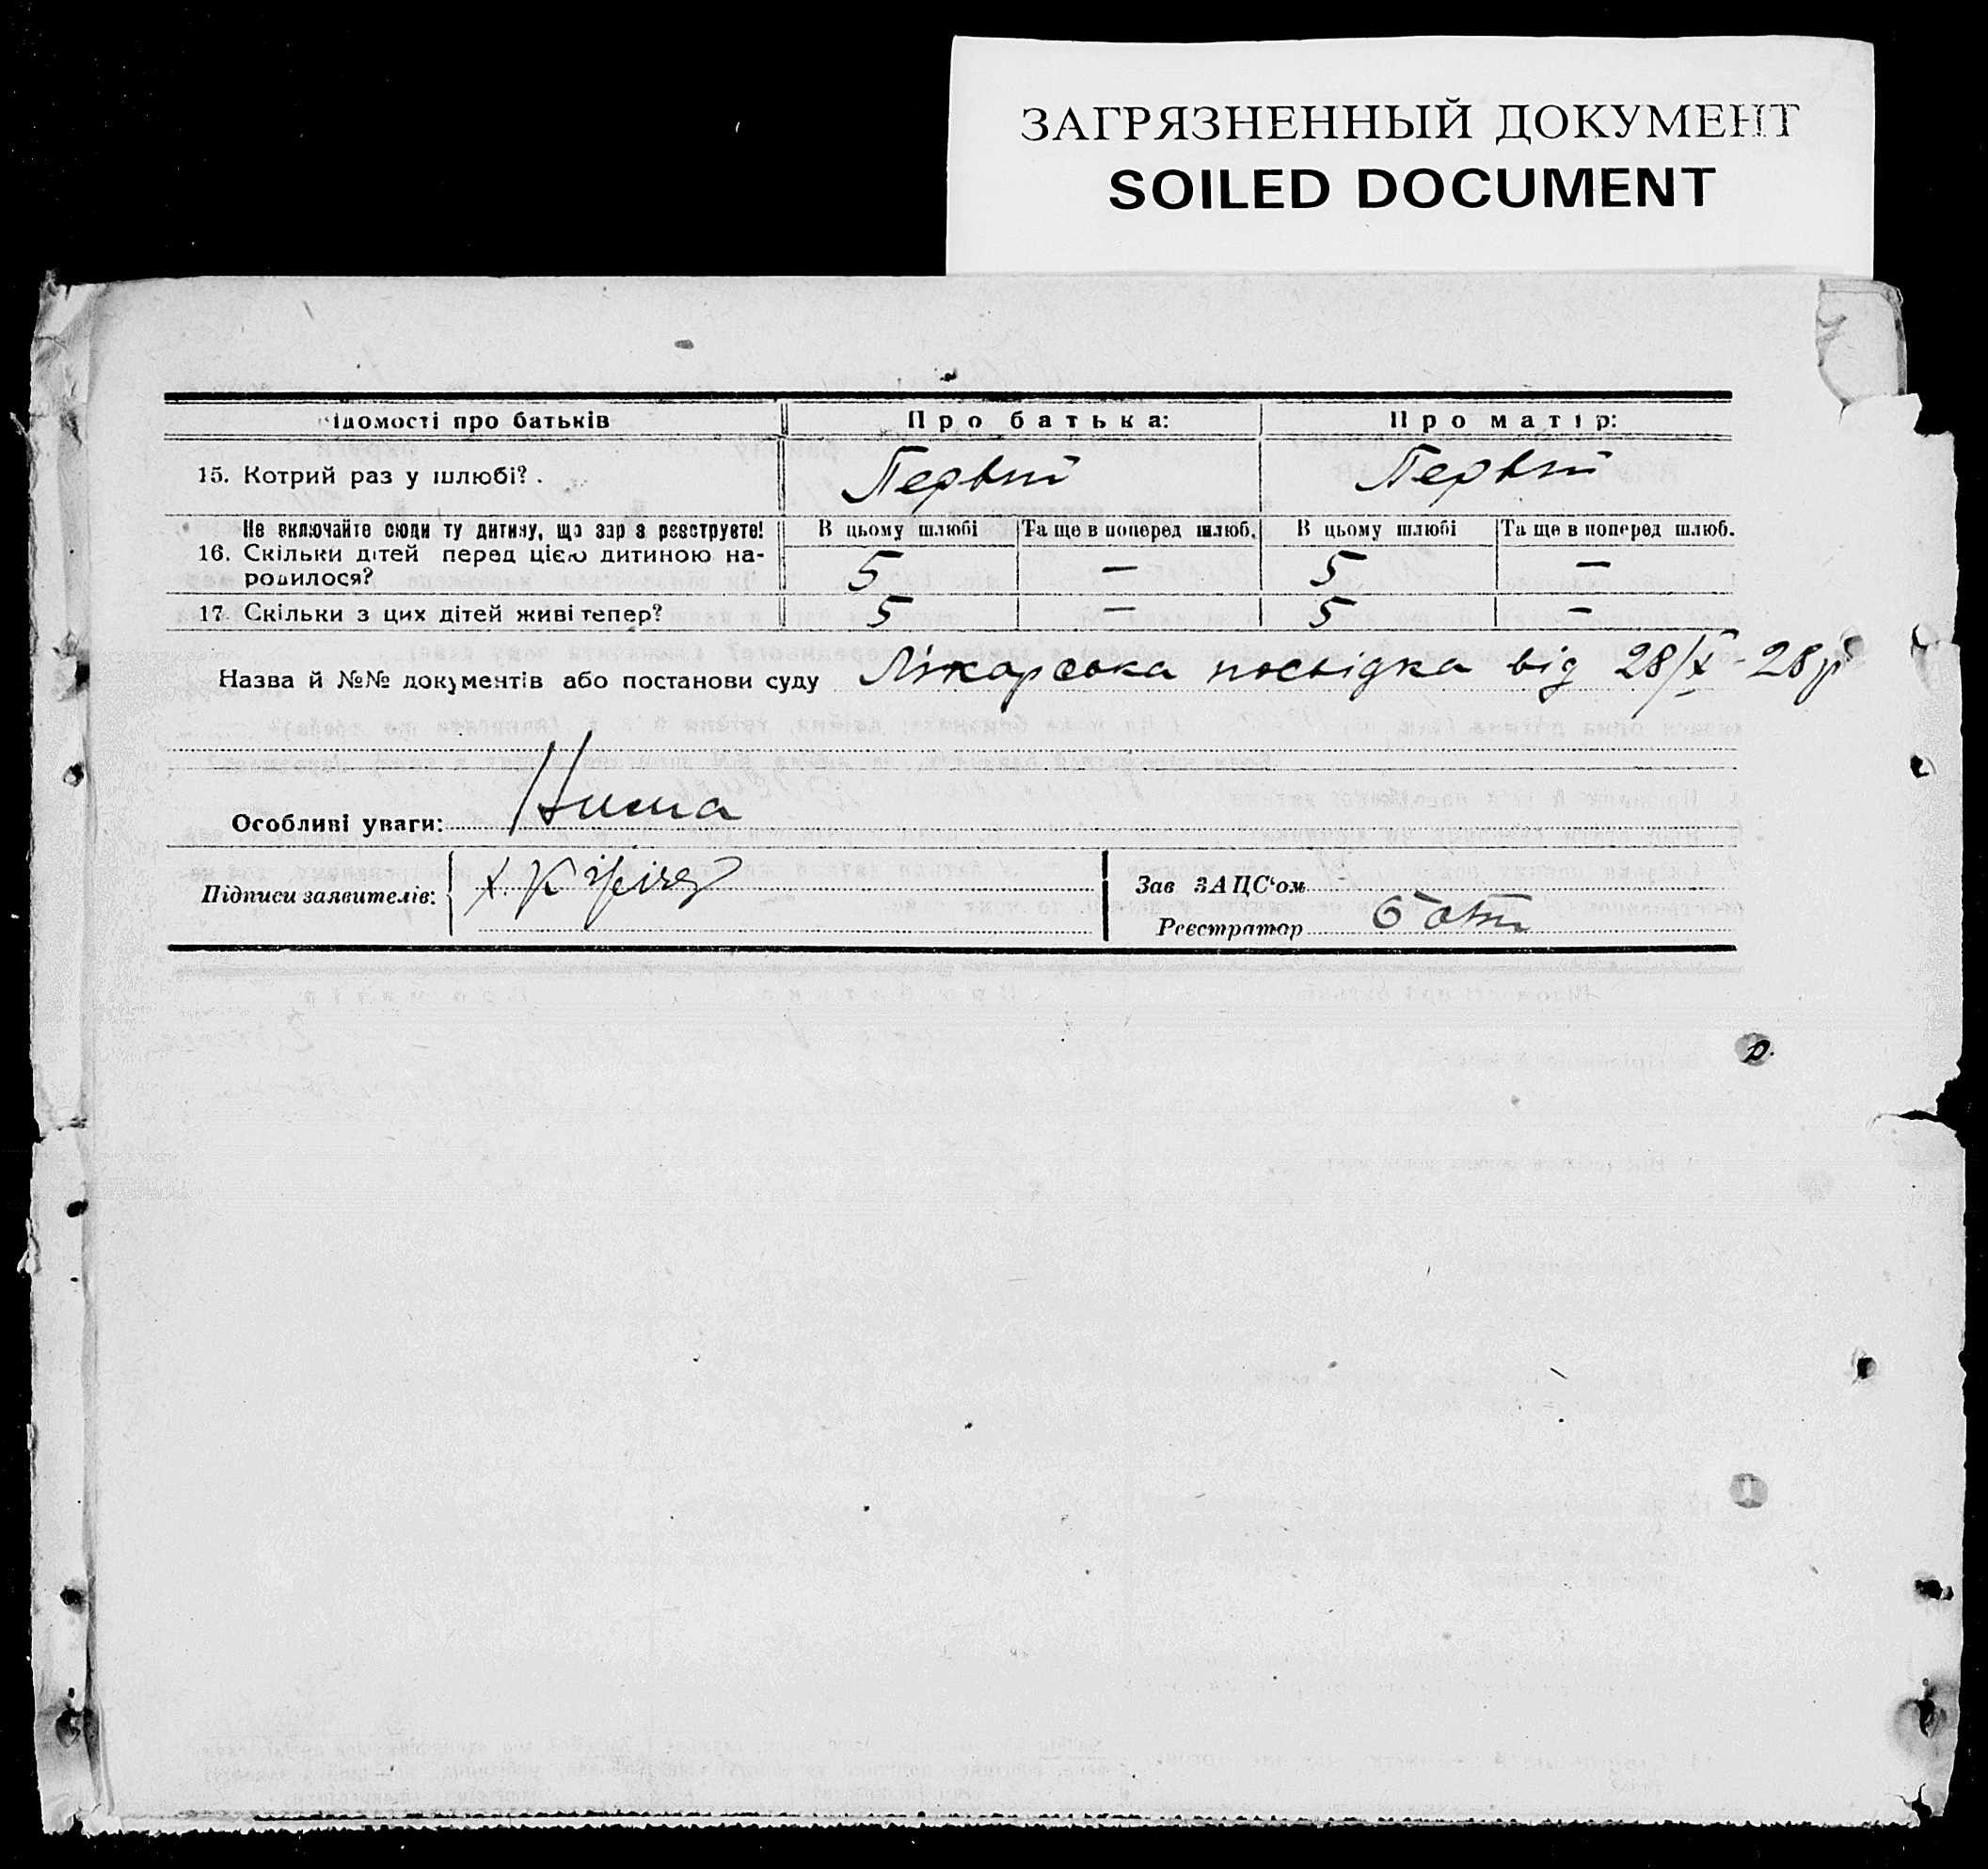 ЗАГРЯЗНЕННЫЙ ДОКУМЕНТ
SOILED DOCUMENT
ідомості про батьків Про батька: Про матір:
15. Котрий раз у шлюбі? . Первый Первый
Не включайте сюди ту дитину, що зараз реєструєте! В цьому шлюбі Та ще в поперед шлюб. В цьому шлюбі Та ще в поперед шлюб.
16. Скільки дітей перед цією дитиною на-
родилося? 5 — 5 —
17. Скільки з цих дітей живі тепер? 5 — 5 —
Назва й №№ документів або постанови суду Лікарська посвідка від 28/X-28р
Особливі уваги:
Підписи заявителів:
Зав ЗАЦС‘ом
Реєстратор